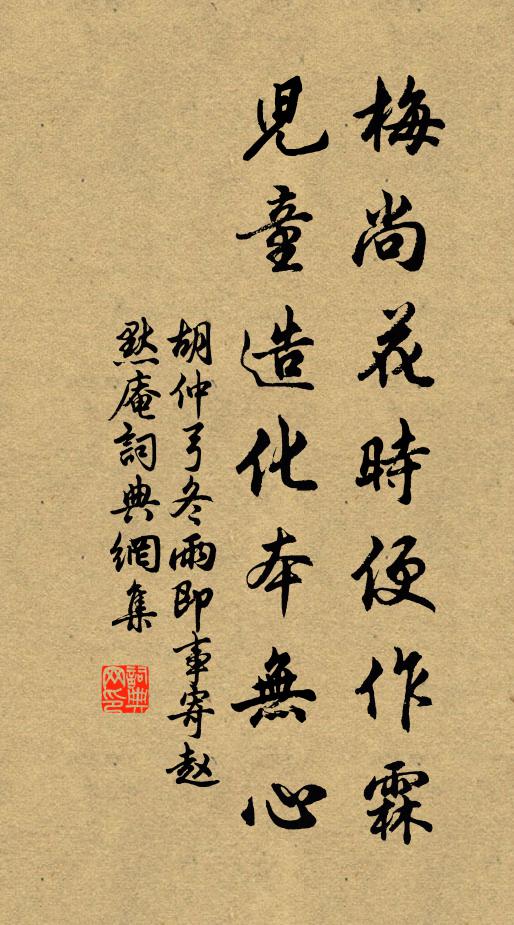 梅尚花時便作霖
兒童造化本無心
胡仲弓冬雨即事寄赵
默庵詞典網集
詞典
网印